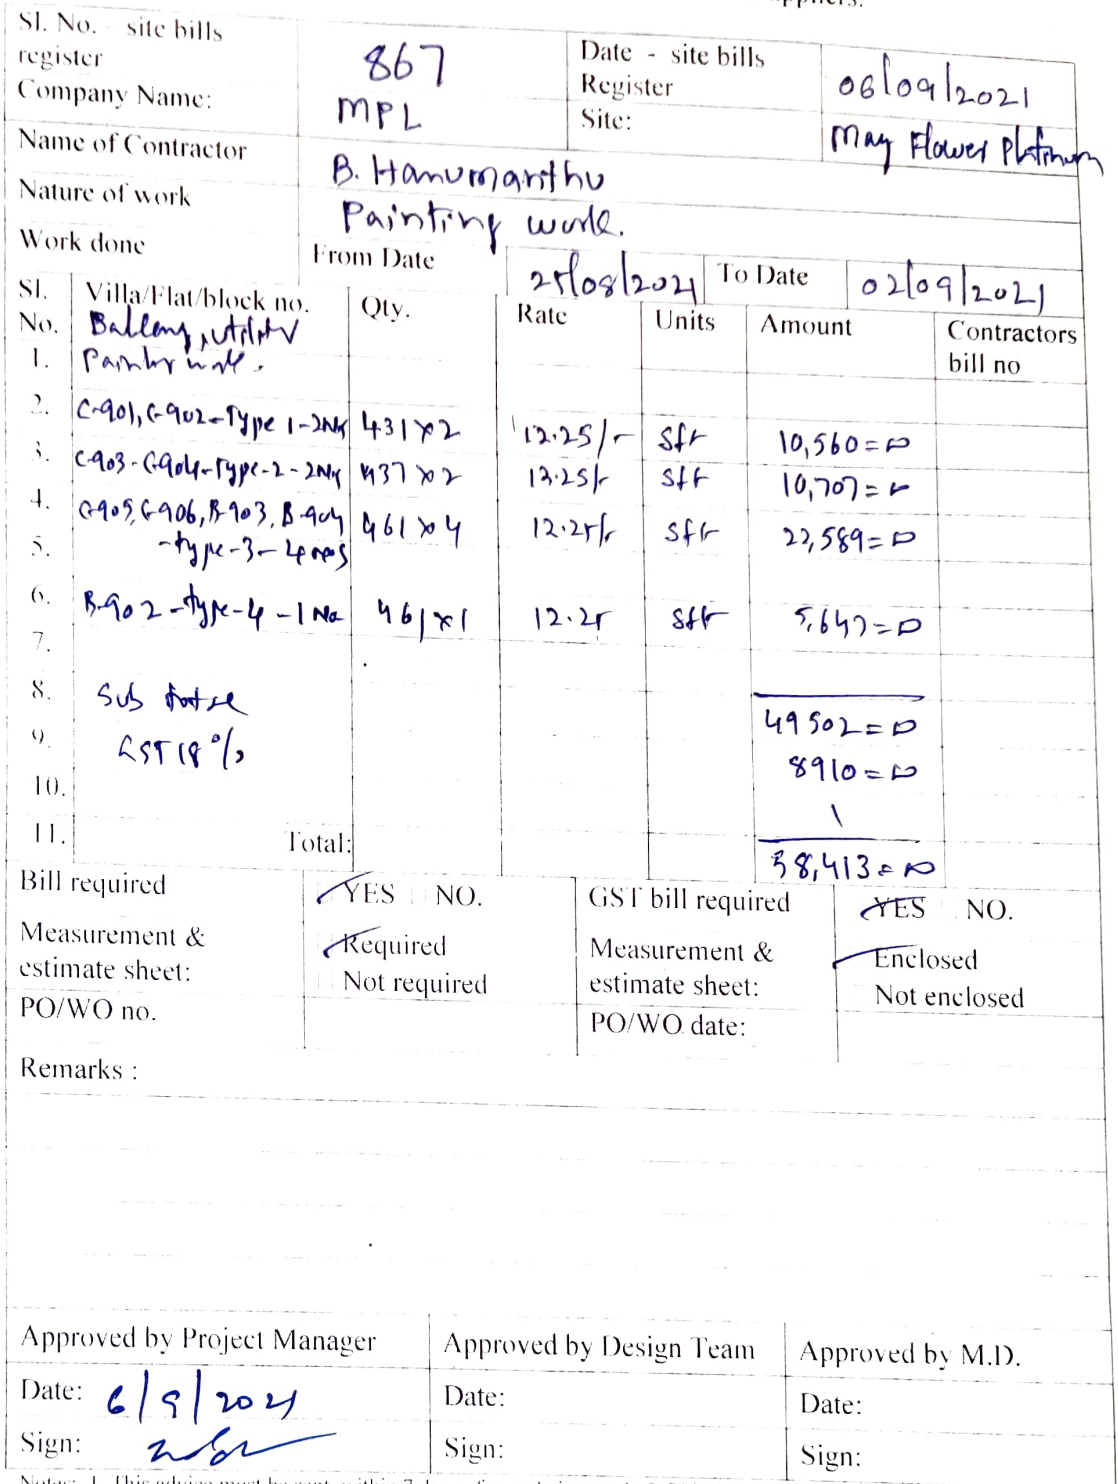 Sl. No. - site bills register 867 Date - site bills Register 06/09/2021
Company Name: MPL Site: May Flower Platinum
Name of Contractor B. Hanumanthu
Nature of work Painting work.
Work done From Date 25/08/2021 To Date 02/09/2021
Sl. No. Villa/Flat/block no. Qty. Rate Units Amount Contractors bill no
Balcony, utility
1. Painting work.
2. C-901, C-902-Type 1-2Nos 431x2 12.25/- sft 10,560=00
3. C-903-C-904-Type-2-2Nos 437x2 12.25/- sft 10,707=00
4. C-905, C-906, B-903, B-904 461x4 12.25/- sft 22,589=00
5. -type-3-4nos
6. B-902-type-4-1No 461x1 12.25 sft 5,647=00
7.
8. Sub total 49502=00
9. GST 18% 8910=00
10.
11. Total: 58,413=00
Bill required YES NO. GST bill required YES NO.
Measurement & estimate sheet: Required Not required Measurement & estimate sheet: Enclosed Not enclosed
PO/WO no. PO/WO date:
Remarks :
Approved by Project Manager Approved by Design Team Approved by M.D.
Date: 6/9/2021 Date: Date:
Sign: Sign: Sign: